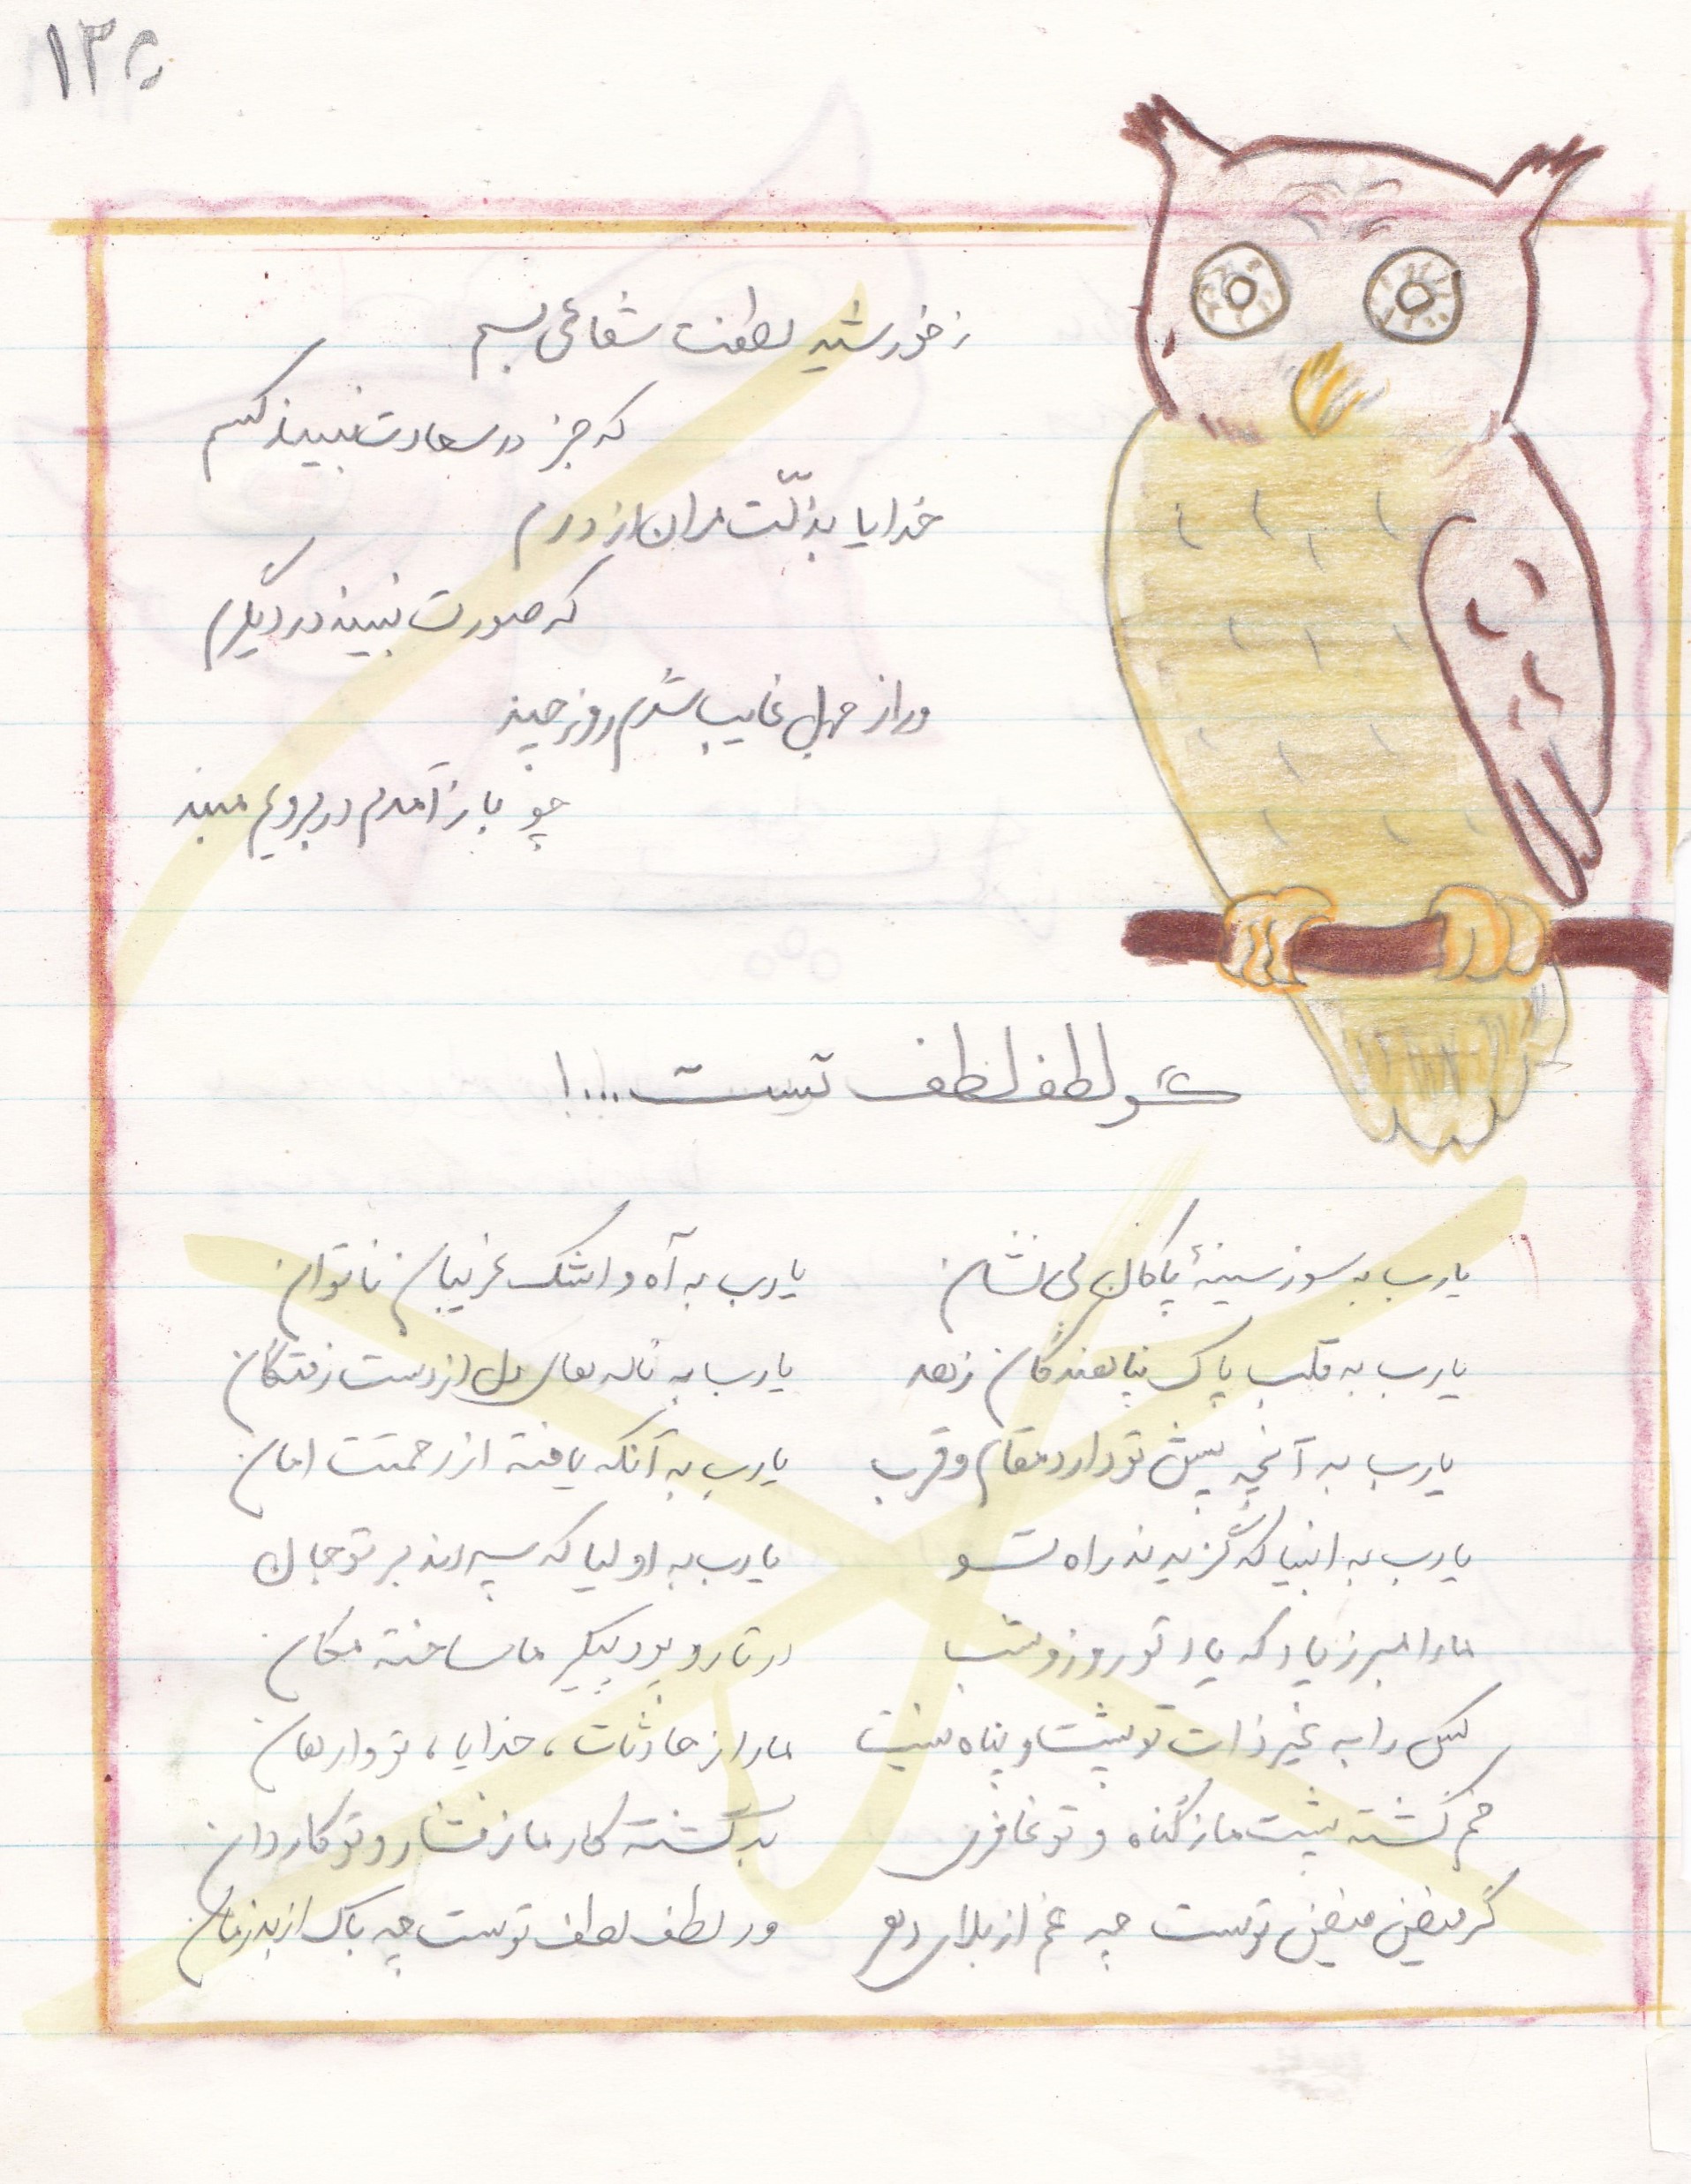 ز خورشید لطفت شعاعی بسم
که جز در سعادت نبیند کسم
خدایا بذلّت مران از درم
که صورت نبیند در دیگرم
ور از جهل غایب شدم روز چند
چو باز آمدم در برویم مبند
گو لطف لطف تست...!
یا رب به سوز سینهٔ پاکان بی نشان
یا رب به آه و اشک غریبان ناتوان
یا رب به قلب پاک پناهندگان زهد
یا رب به ناله های دل از دست رفتگان
یا رب به آنچه پیش تو دارد مقام و قرب
یا رب به آنکه یافته از رحمتت امان
یا رب به انبیا که گزیدند راه تو
یا رب به اولیا که سپردند بر تو جان
ما را مبر ز یاد که یاد تو روز و شب
در تار و پود پیکر ما ساخته مکان
کس را به غیر ذات تو پشت و پناه نیست
ما را از حادثات، خدایا، تو وارهان
خم گشته پشت ما ز گناه و تو غافری
بد گشته کار ما ز فشار و تو کاردان
گر فیض فیض توست چه غم از بلای دهر
ور لطف لطف توست چه باک از بد زمان